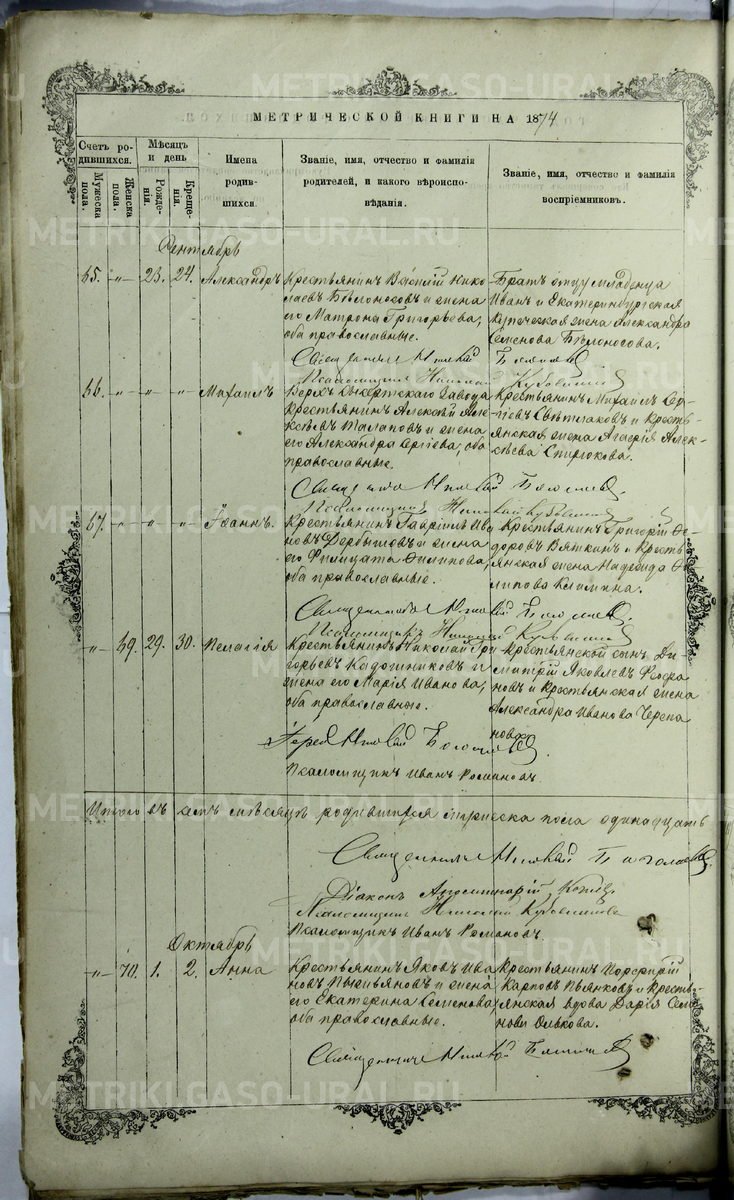 МЕТРИЧЕСКОЙ КНИГИ НА 1874
Счетъ родившихся.
Мужеска пола.
Женска пола.
Мѣсяцъ и день
Рожденія.
Крещенія.
Имена родившихся.
Званіе, имя, отчество и фамилія родителей, и какого вѣроисповѣданія.
Званіе, имя, отчество и фамилія воспріемниковъ.
Сентябрь
65. -"- 23. 24. Александръ
Крестьянинъ Василій Нико
лаевъ Бѣлоносовъ и жена
его Матрона Григорьева,
оба православные.
Братъ отцу младенца
Иванъ и Екатеринбургская
купеческая жена Александра
Семенова Бѣлоносова.
Священникъ
Псаломщикъ Николай
66. -"- " " Михаилъ
Верхъ Сысертскаго завода
крестьянинъ Алексѣй Але
ксѣевъ Талаповъ и жена
его Александра Сергіева, оба
православные.
Крестьянинъ Михаилъ Сер
гіевъ Свѣтлаковъ и кресть
янская жена Агафія Алек
сѣева
Священникъ
Псаломщикъ Николай
67. -"- " " Іоаннъ.
Крестьянинъ Гавріилъ Ива
новъ и жена
его Филицата Филипова,
оба православные.
Крестьянинъ Григорій Фе
доровъ Вяткинъ и кресть
янская жена Надежда Фи
липова
Священникъ
Псаломщикъ Николай
-"- 69. 29. 30. Пелагія
Крестьянинъ Николай Гри
горьевъ Кадочниковъ и
жена его Марія Иванова,
оба православные.
Крестьянской сынъ Ди
митрій Яковлевъ
и крестьянская жена
Александра Иванова Черепа
нова
Іерей
Псаломщикъ Иванъ Романовъ
Итого въ семъ мѣсяцѣ родившихся мужеска пола одинадцать
Священникъ
Діаконъ
Псаломщикъ Николай
Псаломщикъ Иванъ Романовъ.
Октябрь
-"- 70. 1. 2. Анна
Крестьянинъ Яковъ Ива
новъ и жена
его Екатерина Семенова,
оба православные.
Крестьянинъ Порфирій
Карповъ Пьянковъ и кресть
янская вдова Дарія Семе
нова Олькова.
Священникъ
METRIKI.GASO-URAL.RU